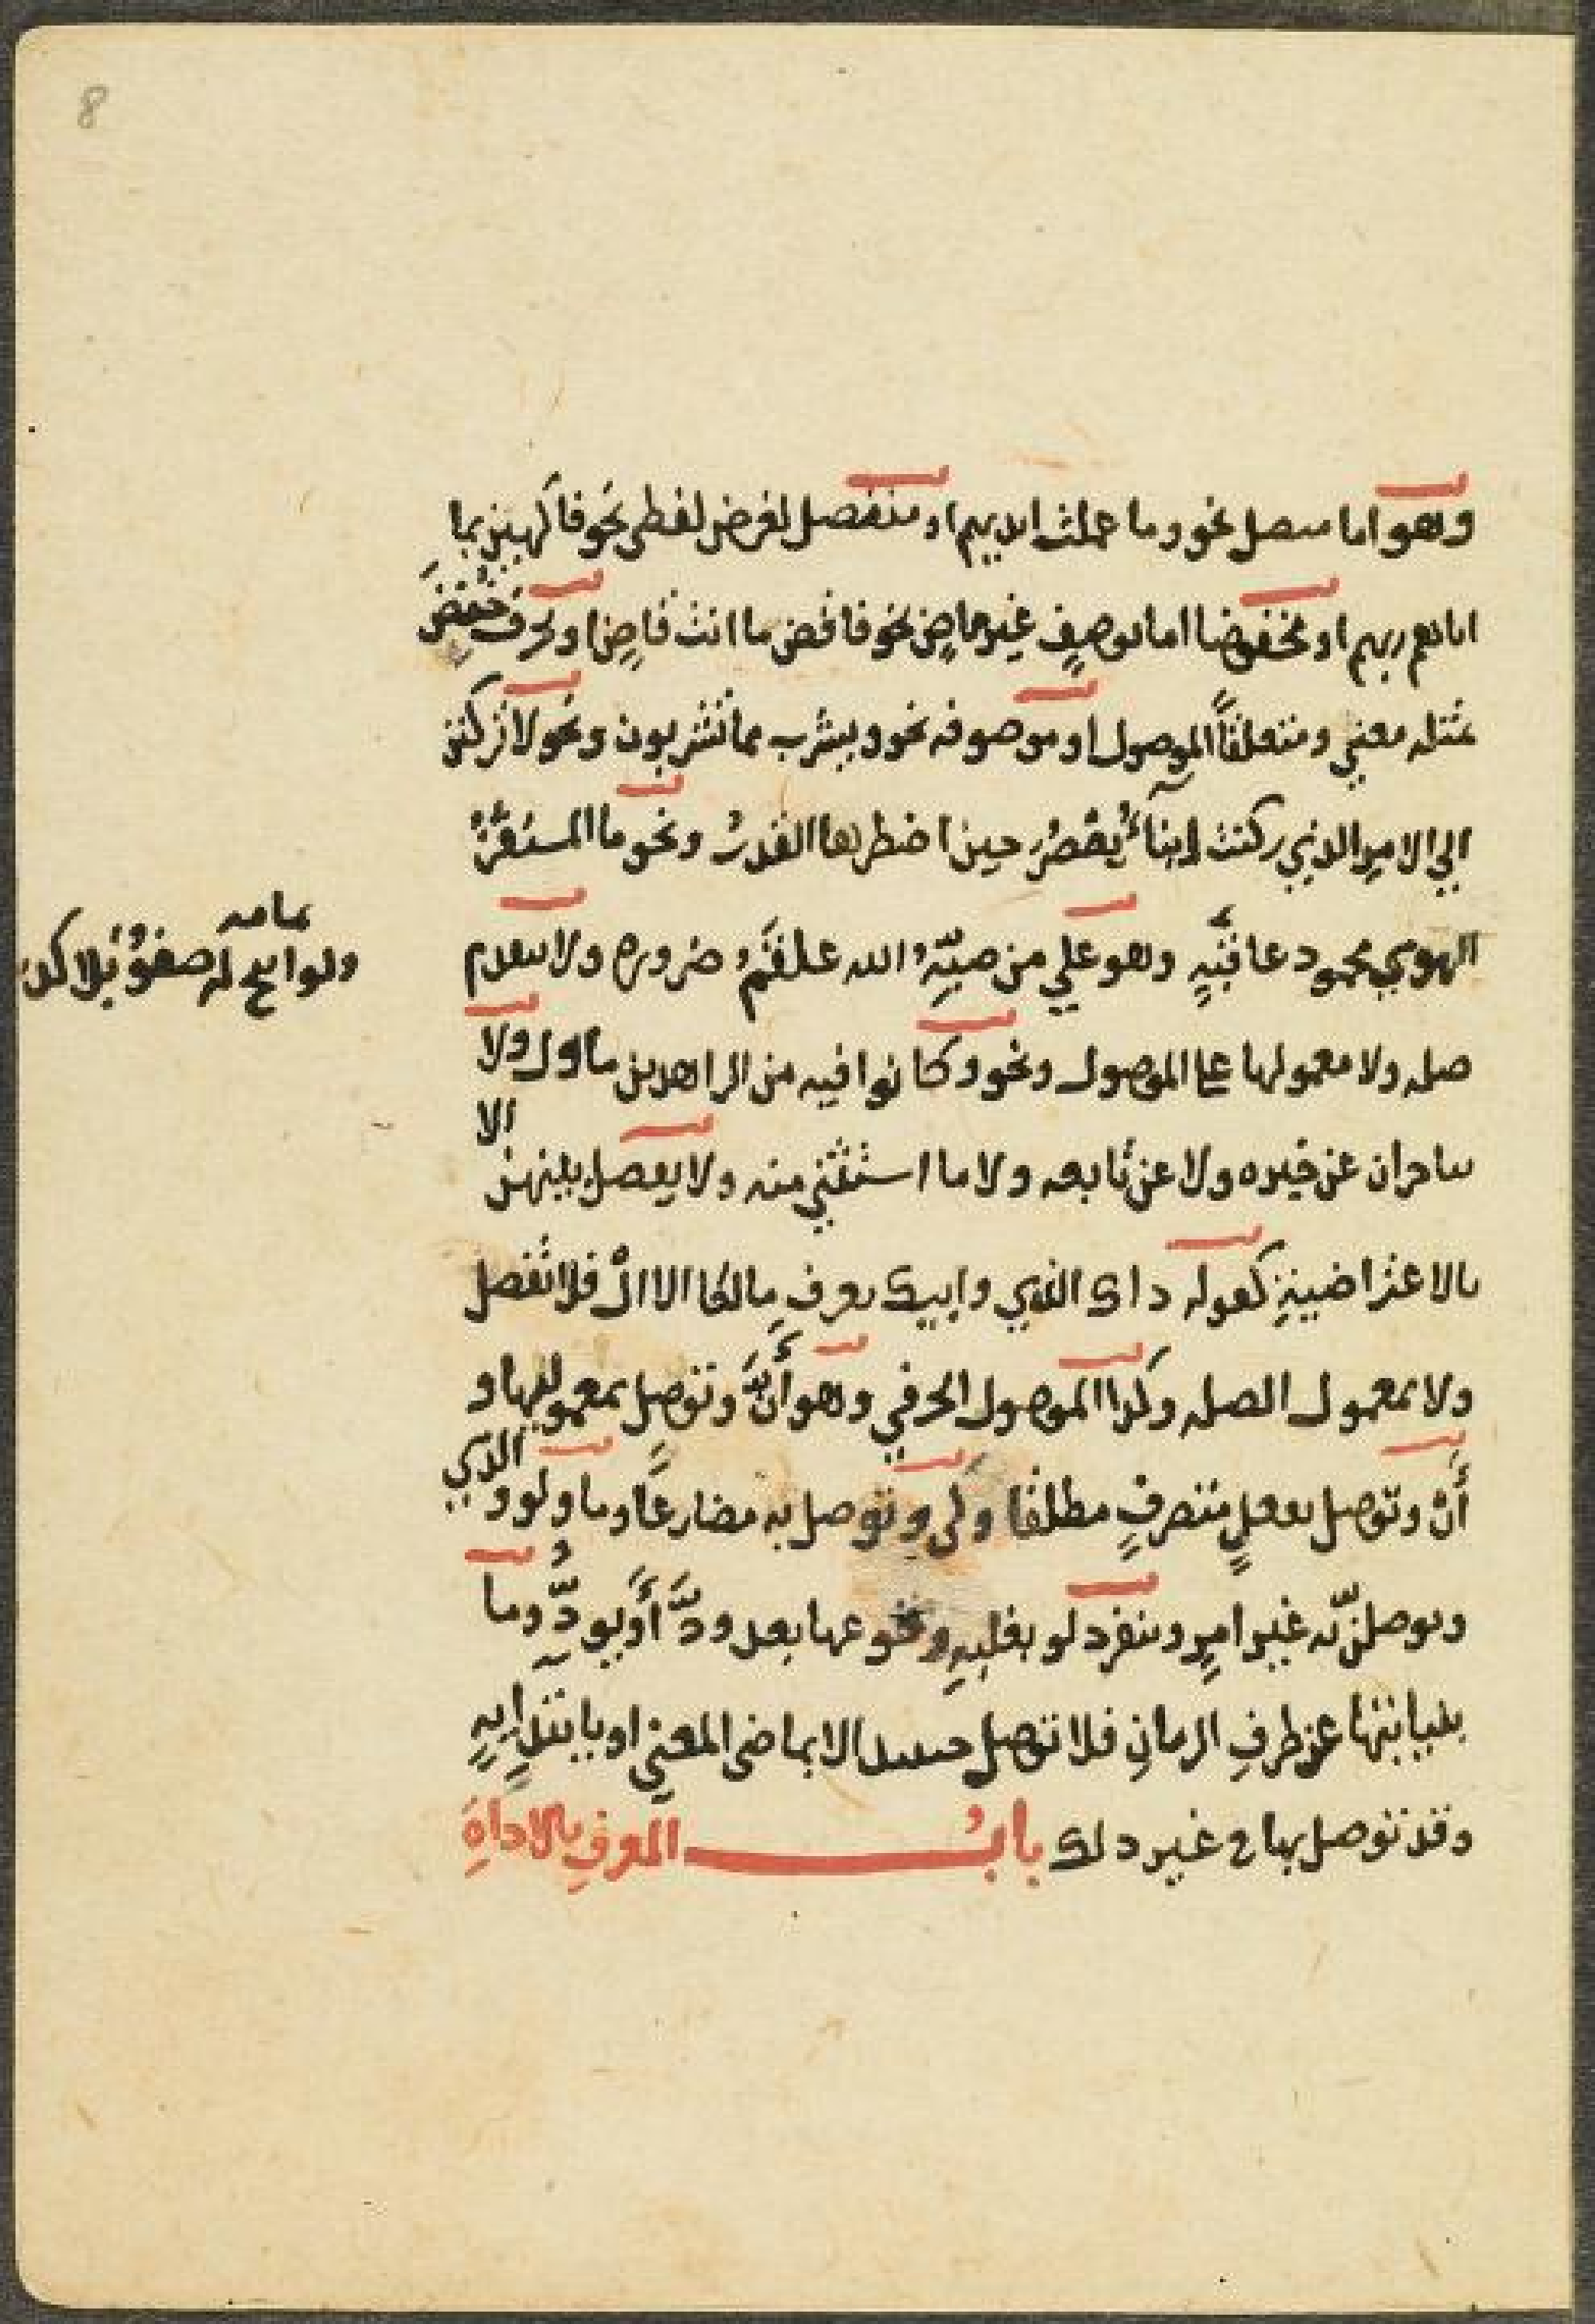 8
وهو اما متصل نحو وما عملت ايديهم او منفصل لغرض لفظي نحو فاكهين بما
اتاهم ربهم او مخفوضا اما بوصفٍ غير ماضٍ نحو فاقض ما انت قاضٍ او بحرف خُفِضَ
بمثله معني ومتعلقاً الموصول او موصوفه نحو ويشرب مما تشربون ونحو لا تركنن
الي الامر الذي ركنت ابناءُ يعصُرَ حين اضطرها القدرُ ونحو ما المستفزُّ
الهوي محمود عاقبةٍ وهو علي من صبَّهُ الله علقَمُ ضروره ولا تتقدم
تمامه
ولو اتيح له صفوٌ بلا كدر
صله ولا معمولها علي الموصول ونحو وكانوا فيه من الزاهدين ماول ولا
يتاخران عن خبره ولا عن تابعه ولا ما استثني منه ولا يفصل بينهن الا
بالاعتراضيةِ كقوله ذاك الذي وابيك يعرف مالكا الا الْ فلا تفصل
ولا بمعمول الصله وكذا الموصول الحرفي وهو أَنَّ وتوصل بمعموليها و
أَنْ وتوصل بفعلٍ متصرفٍ مطلقا وكَي وتوصل به مضارعًا وما ولو الذي
وتوصلان به غير امرٍ وتنفرد لو بغلبةِ وقوعها بعد ودَّ أَو يودُّ وما
بنيابتها عن ظرفِ الزمانِ فلا توصل حينئذ الا بماضي المعني او بابتدايةٍ
وقد توصل بها في غير ذلك بابُ المعرفِ بالاداةِ